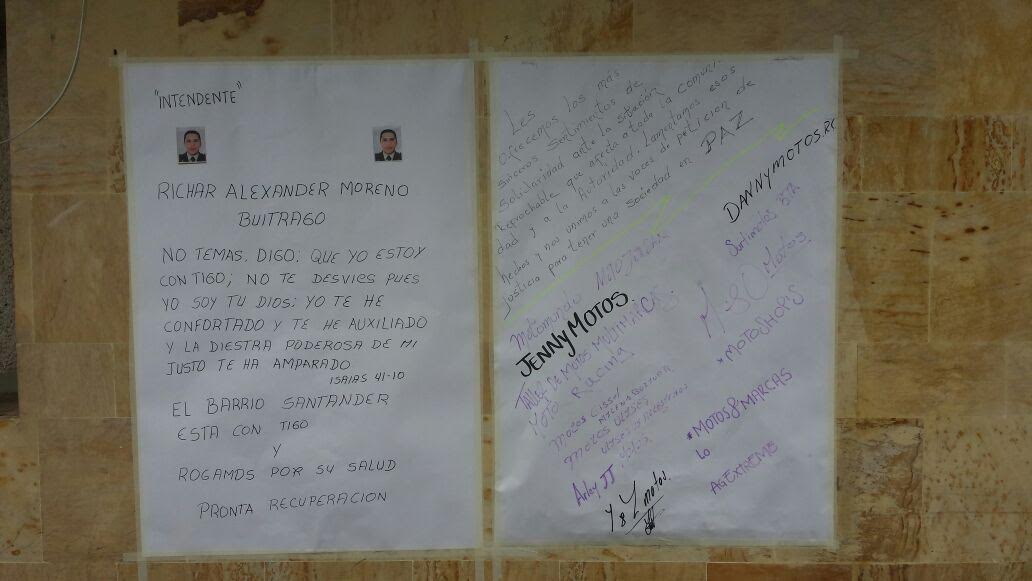 "INTENDENTE"
RICHAR ALEXANDER MORENO
BUITRAGO
NO TEMAS, DIGO; QUE YO ESTOY
CON TIGO; NO TE DESVIES PUES
YO SOY TU DIOS; YO TE HE
CONFORTADO Y TE HE AUXILIADO
Y LA DIESTRA PODEROSA DE MI
JUSTO TE HA AMPARADO
ISAIAS 41-10
EL BARRIO SANTANDER
ESTA CON TIGO
Y
ROGAMOS POR SU SALUD
PRONTA RECUPERACION
Les los mas
Ofrecemos Sentimientos de
sinceros
Solidaridad ante la situación
reprochable que afecta a toda la comuni-
dad y a la Autoridad. Lamentamos esos
hechos y nos unimos a las voces de petición de
Justicia para tener una Sociedad en PAZ
Motomundo
JENNY MOTOS
TALLER DE MOTOS MULTIMARCAS
MOTO Racing
Motos
Arley JJ
Y & Y motos
DANNY MOTOS.RC
Surtimotos
Motos
*MOTOSHOP'S
*MOTOS & MARCAS
LO
AGEXTREMS